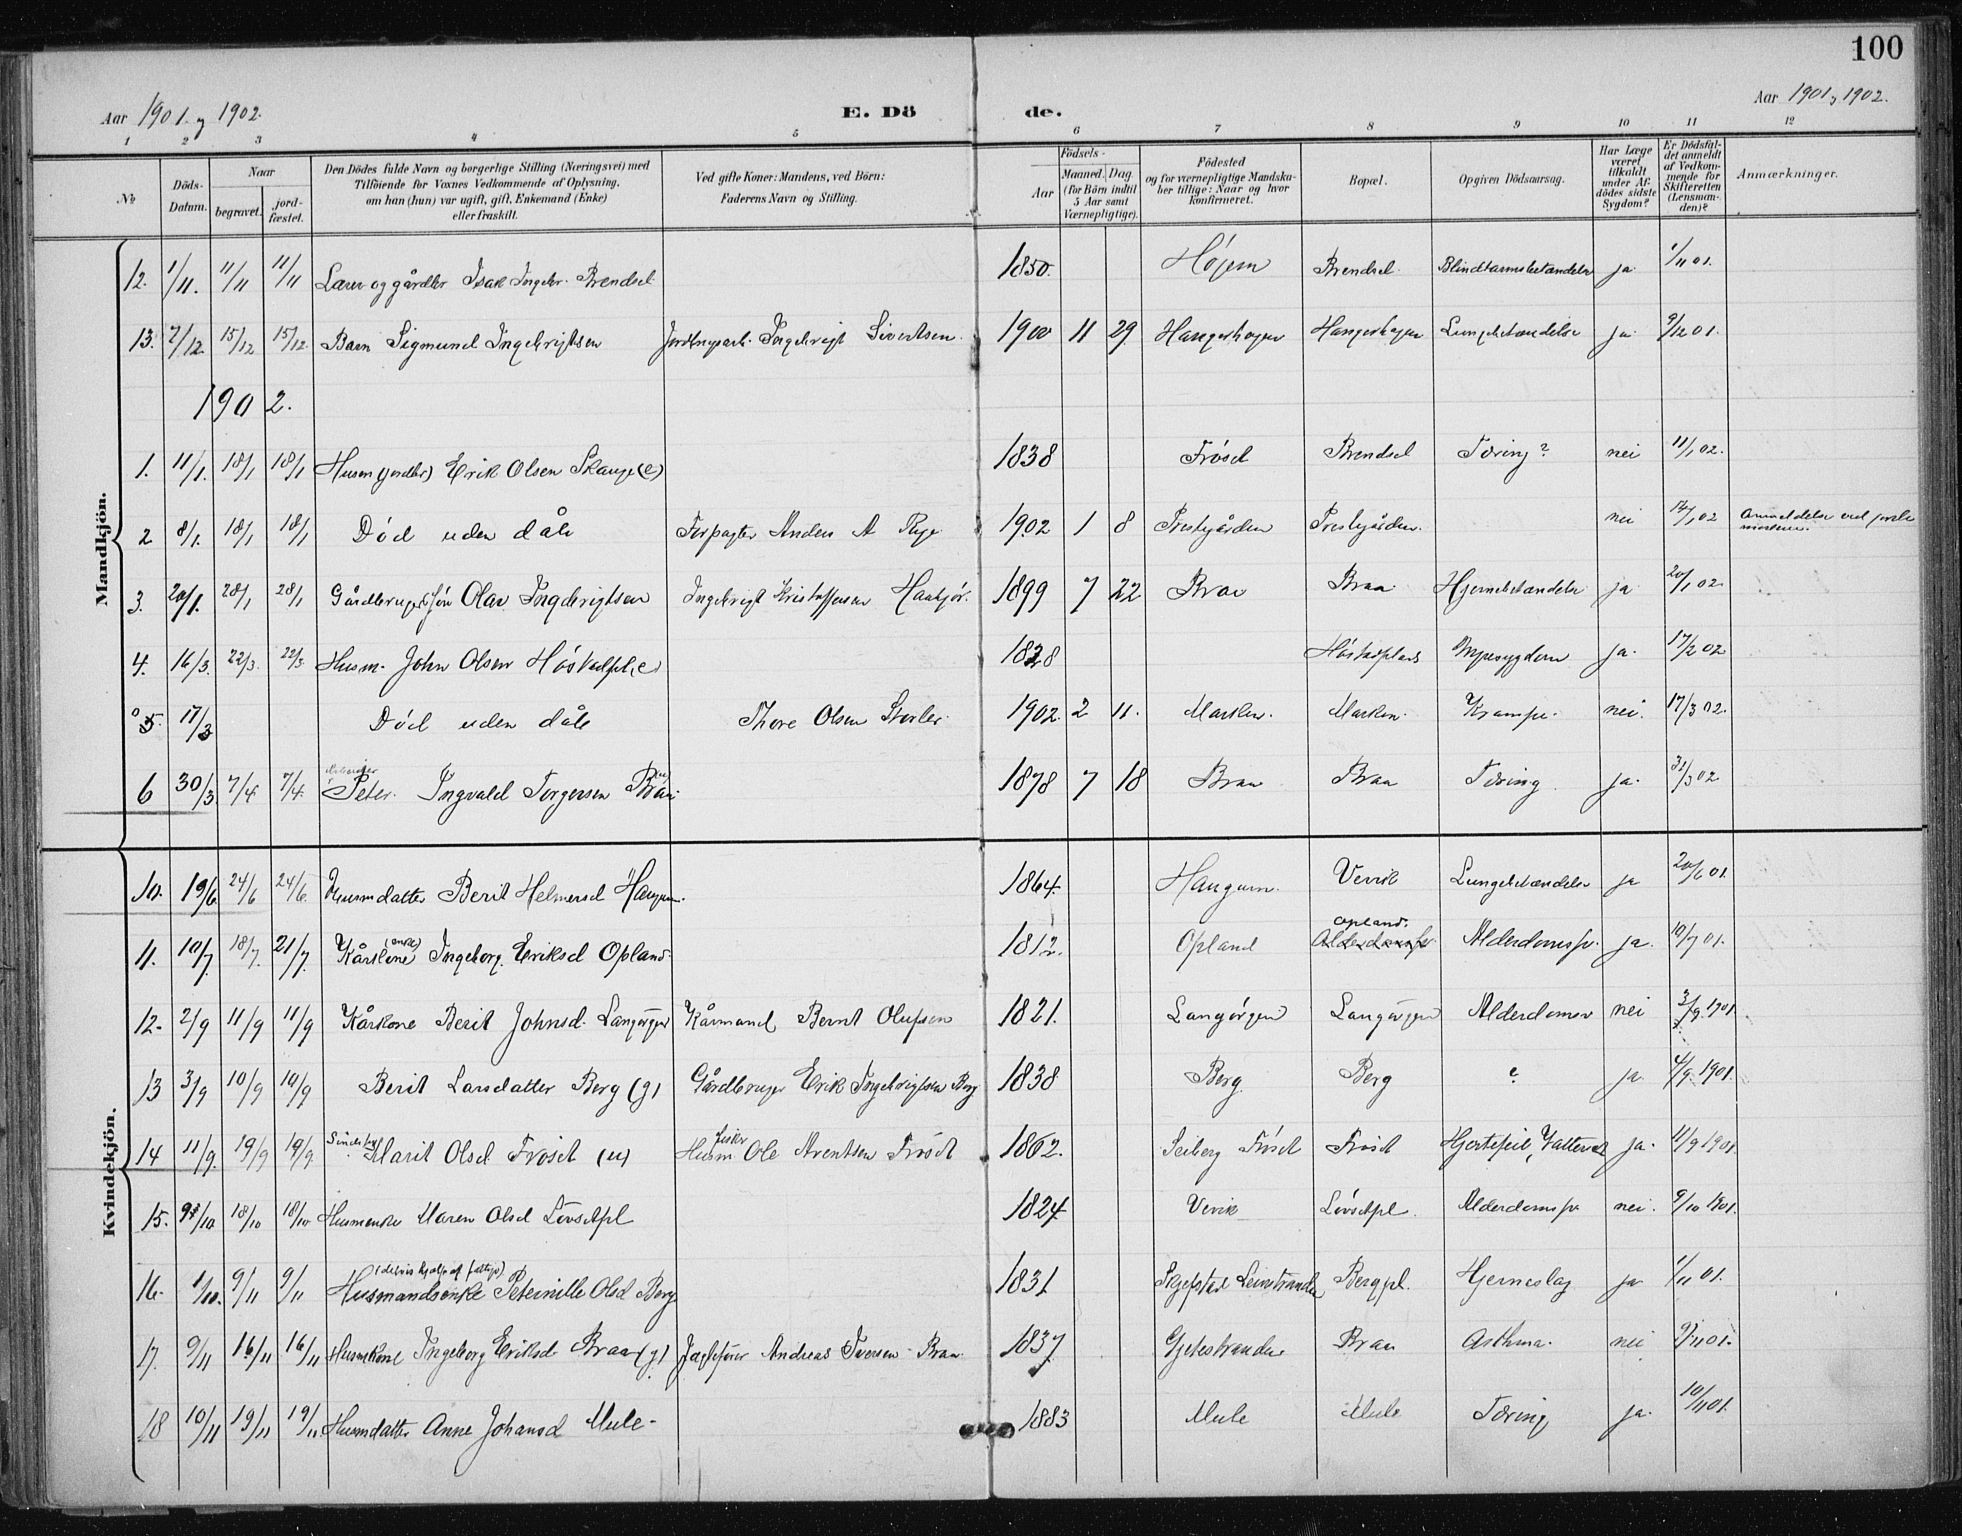 100
Aar 1901 og 1902. E. Dö de. Aar 1901 og 1902.
1 2 3 4 5 6 7 8 9 10 11 12
No
Döds-Datum.
Naar
begravet. jord-fæstet.
Den Dödes fulde Navn og borgerlige Stilling (Næringsvei) med
Tilföiende for Voxnes Vedkommende af Oplysning,
om han (hun) var ugift, gift, Enkemand (Enke)
eller fraskilt.
Ved gifte Koner: Mandens, ved Börn:
Faderens Navn og Stilling.
Födsels-
Aar
Maaned. Dag.
(for Börn indtil
5 Aar samt
Værnepligtige).
Födested
og for værnepligtige Mandska-
ber tillige: Naar og hvor
konfirmeret.
Bopæl.
Opgiven Dödsaarsag.
Har Læge
været
tilkaldt
under Af-
dödes sidste
Sygdom?
Er Dödsfal-
det anmeldt
af Vedkom-
mende for
Skifteretten
(Lensman-
den)?
Anmærkninger.
Mandkjön.
12. 1/11. 11/11 11/11 Lærer og gårdbr Isak Ingebr. Brendsel 1850. Højem Brendsel. Blindtarmsbetændelse ja 1/11 01.
13. 7/12 15/12 15/12 Barn Sigmund Ingebrigtsen Ingebrigt Sivertsen. 1900 11 29 Hangerhagen Hangerhagen Lungebetændelse ja 9/12 01.
1902.
1. 11/1. 18/1 18/1 Husm (jordbr) Erik Olsen Skauge (e) 1838 Frøset Brendsel Tæring? nei 11/1 02.
2 8/1. 18/1 18/1 Død uden dåb Forpagter Anders A Rye 1902 1 8 Prestegården Prestegården. nei 14/1 02
3. 20/1. 28/1 28/1 Gårdbrugersøn Olav Ingebrigtsen Ingebrigt Kristoffersen 1899 7 22 Braa Braa Hjernebetændelse ja 20/1 02.
4. 16/3. 22/3. 22/3. Husm. John Olsen Høstadpl. (e) 1828 Høstadplads Nyresygdom ja. 17/2 02
5. 17/3 Død uden dåb Thore Olsen 1902. 2 11. Marken. Marken. Krampe. nei. 17/3 02.
6 30/3 7/4 7/4. Peter. Ingvald Torgersen Braa 1878 7 18 Braa Braa Tæring. ja. 31/3 02
Kvindekjön.
10. 19/6 24/6 24/6. Husmdatter Berit Helmersd Haugum. 1864. Haugum. Vervik Lungebetændelse ja 20/6 01.
11. 10/7. 18/7. 21/7. Kårkone (enke) Ingeborg Eriksd Opland. 1812. Opland Opland. Alderdomssv. ja. 10/7 01.
12. 2/9 11/9 11/9 Kårkone Berit Johnsd. Langørgen Kårmand Bernt Olufsen 1821. Langørgen Langørgen Alderdomssv nei 3/9. 1901.
13 3/9 10/9 10/9 Berit Larsdatter Berg (g) Gårdbruger Erik Ingebrigtsen Berg 1838 Berg. Berg ? ja 4/9. 1901.
14 11/9. 19/9 19/9. Marit Olsd Frøset (u) Husm fisker Ole Arentsen Frøset 1862. Frøset Frøset Hjertefeil, Vattersot ja. 11/9 1901.
15. 9/10 18/10 18/10 Husmenke Maren Olsd Løvsetpl 1824 Vervik Løvsetpl. Alderdomssv nei. 9/10 1901.
16. 1/10. 9/11 9/11 (delvis hjælp af fattigv) Husmandsenke Peternille Olsd Berg 1831 Skjefstad Leinstranden Bergpl. Hjerneslag ja 1/11 01.
17. 9/11 16/11 16/11 Husmkone Ingeborg Eriksd Braa (g) Andreas Iversen Braa 1837 Gjetestranden Braa Asthma. nei 9/11 01.
18 10/11 19/11 19/11 Husmdatter Anne Johansd Mule 1883 Mule Mule Tæring ja. 10/11 01.